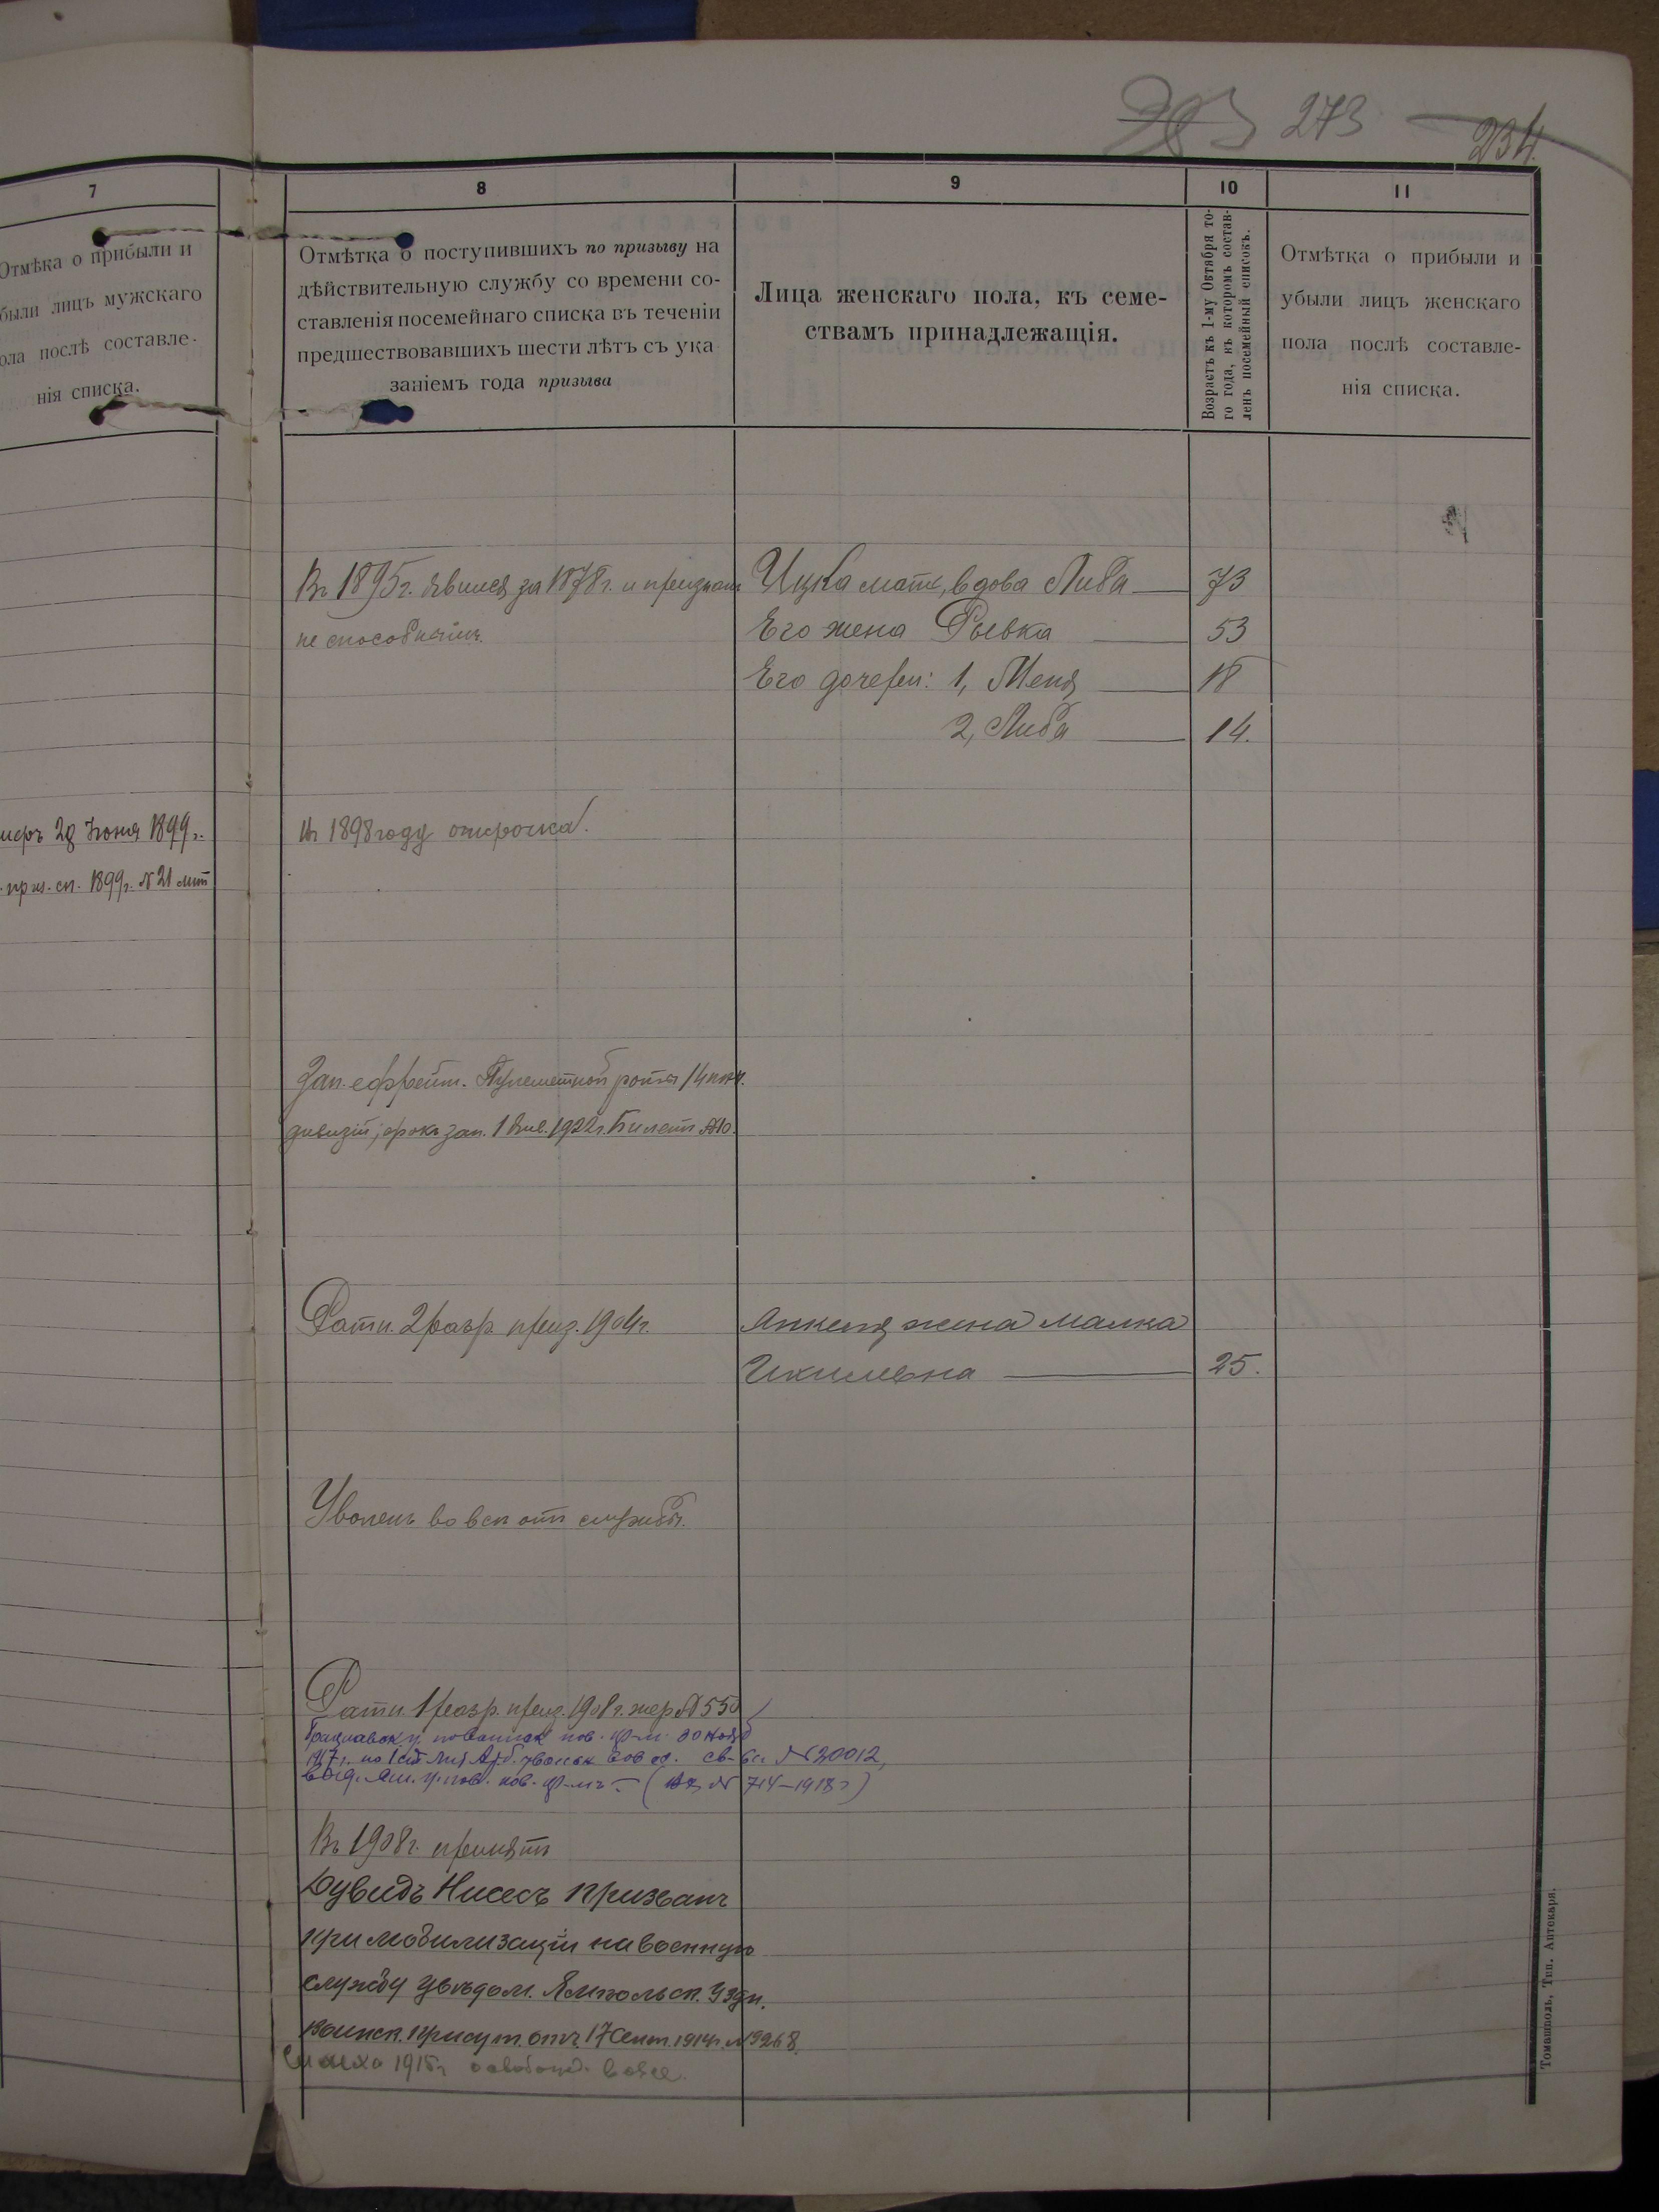 273
234.
7
8
9
10
11
Отмѣка о прибыли и
были лицъ мужскаго
ола послѣ составле-
нія списка.
Отмѣтка о поступившихъ по призыву на
дѣйствительную службу со времени со-
ставленія посемейнаго списка въ теченіи
предшествовавшихъ шести лѣтъ съ ука
заніемъ года призыва
Лица женскаго пола, къ семе-
ствамъ принадлежащія.
Возрастъ къ 1-му Октября то-
го года, въ которомъ состав-
ленъ посемейный списокъ.
Отмѣтка о прибыли и
убыли лицъ женскаго
пола послѣ составле-
нія списка.
Въ 1895г. явился за 1878г. и признанъ
не способнымъ.
Ицка мать, вдова Либа 73
Его жена Рывка 53
Его дочери: 1, Меня 18
2, Либа 14.
меръ 28 Іюня 1899г.
1899г. № 21
Въ 1898 году отсрочка.
Зап. ефрейт. Пулеметной роты 14
дивизіи, срокъ зап. 1 Янв. 1922г. Билетъ
Ратн. 2 разр. приз. 1904г.
Янкеля жена Малка
Ихилевна 25.
Уволенъ вовсе отъ службы.
Ратн. 1 разр. приз. 1908г. жер № 550
1917г. св-во № 20012,
№ 714-1918г)
Въ 1908г. принятъ
Дувидъ Нисесъ призванъ
при мобилизаціи на военную
службу увѣдом. Ямпольск. Уѣзд.
Воинск. присут. отъ 17 Сент. 1914г. № 9268.
1915г освобожд. вовсе.
Томашполь, Тип. Аптекаря.